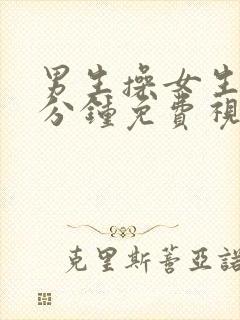 男生操女生
分鍾免費視
克里斯蒂亞諾